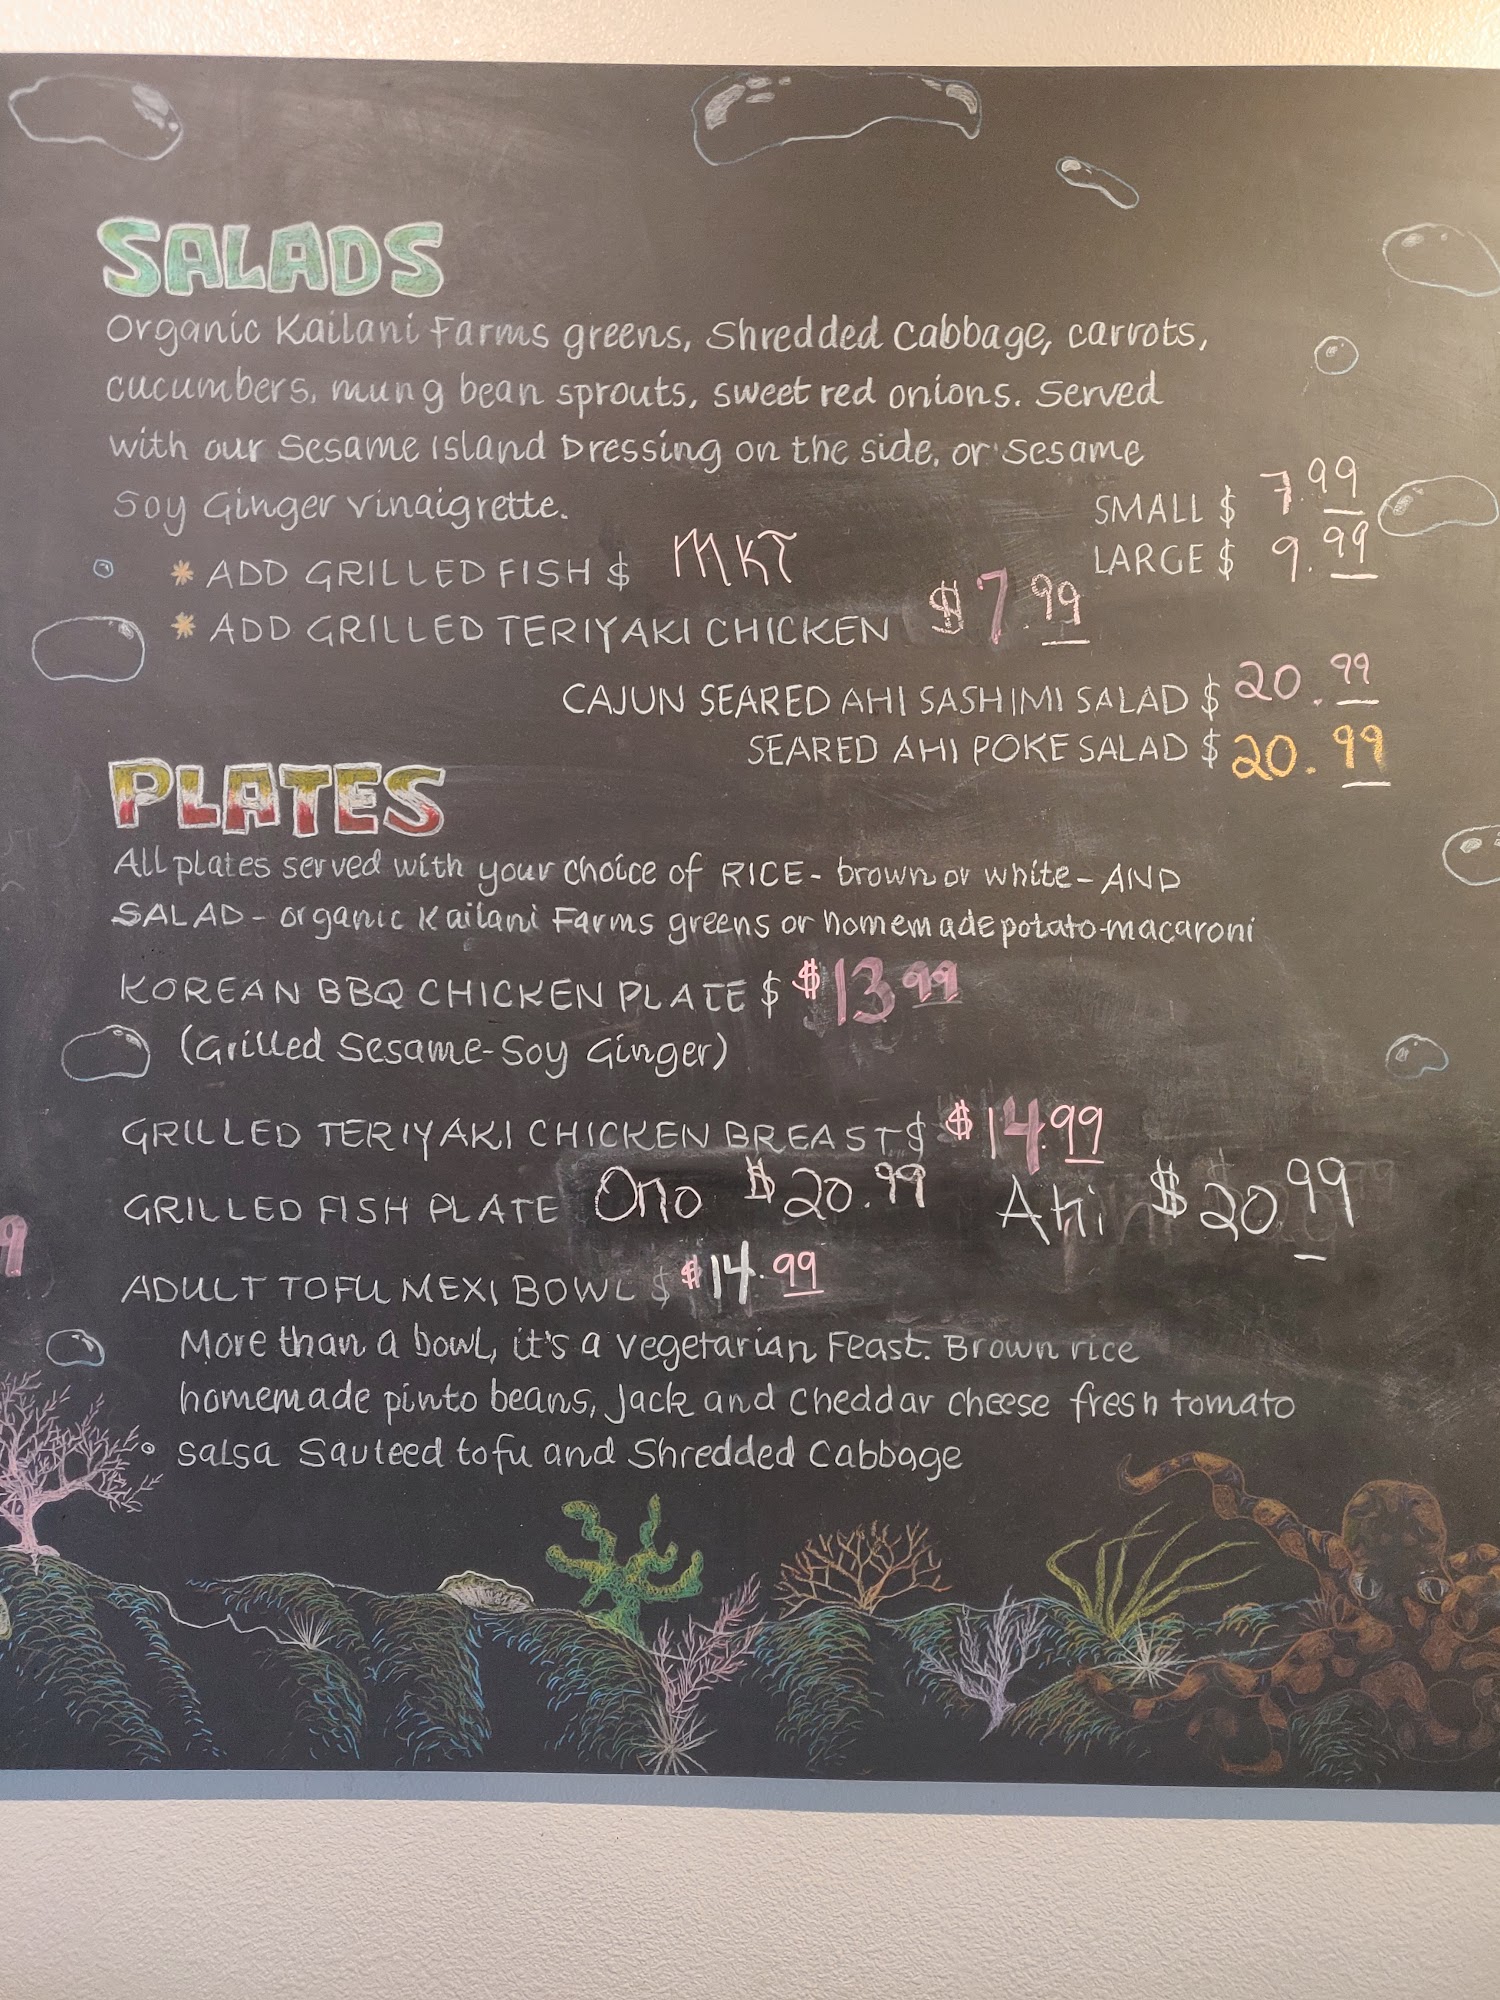 SALADS
Organic Kailani Farms greens, Shredded Cabbage, carrots,
cucumbers, mung bean sprouts, sweet red onions. Served
with our Sesame Island Dressing on the side, or Sesame
Soy Ginger vinaigrette.
SMALL $ 7.99
LARGE $ 9.99
* ADD GRILLED FISH $ MKT
* ADD GRILLED TERIYAKI CHICKEN $7.99
CAJUN SEARED AHI SASHIMI SALAD $ 20.99
SEARED AHI POKE SALAD $ 20.99
PLATES
All plates served with your choice of RICE - brown or white - AND
SALAD - organic Kailani Farms greens or homemade potato-macaroni
KOREAN BBQ CHICKEN PLATE $ $13 99
(Grilled Sesame-Soy Ginger)
GRILLED TERIYAKI CHICKEN BREAST $ $14.99
GRILLED FISH PLATE Ono $20.99 Ahi $20.99
9
ADULT TOFU MEXI BOWL $ $14.99
More than a bowl, it's a vegetarian Feast. Brown rice
homemade pinto beans, Jack and Cheddar cheese fresh tomato
salsa Sauteed tofu and Shredded Cabbage